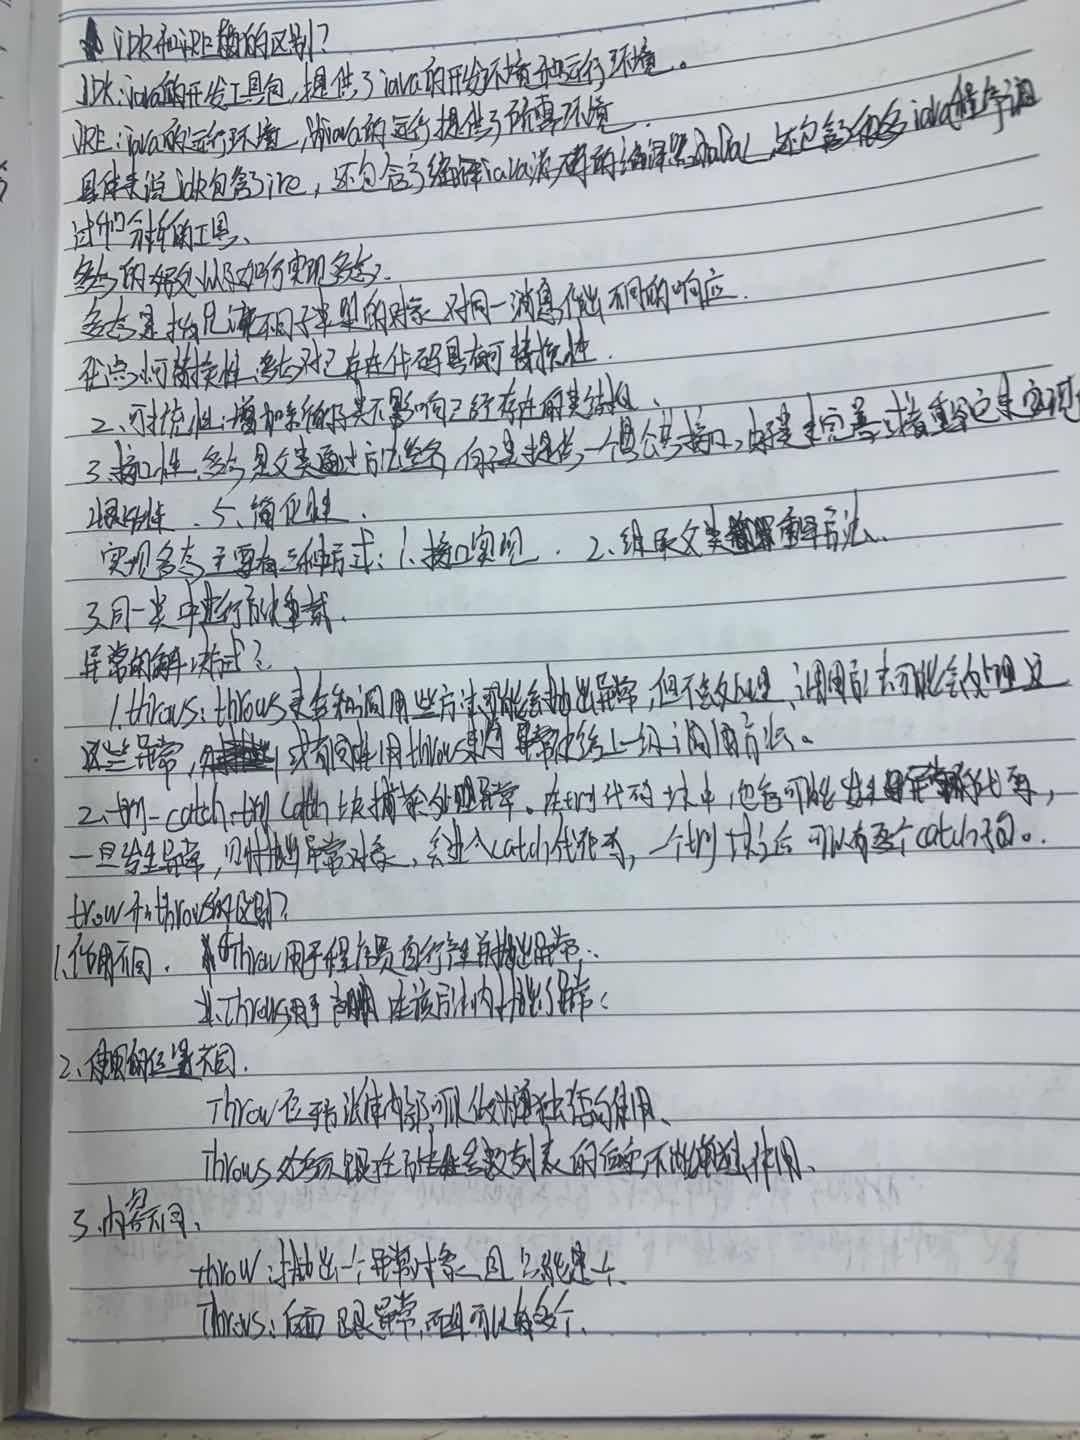 jDK和jRE的区别？
JDK：java的开发工具包，提供了java的开发环境和运行环境。
JRE：java的运行环境，为java的运行提供了所需环境.
具体来说jdk包含了jre，还包含了编译java源码的编译器，还包含了很多java程序调
试和分析的工具、
多态的好处以及如何实现多态？
多态是指允许不同子类型的对象对同一消息作出不同的响应.
优点：1.可替换性：多态对已存在代码具有可替换性.
2、可扩充性：增加新的子类不影响已经存在的类结构、
3.接口性.多态是父类通过方法签名，向子类提供一个公共接口，由子类来完善或者重写它来实现
4.灵活性、5、简化性.
实现多态主要有三种方式：1.接口实现. 2、继承父类重写方法.
3.同一类中进行方法重载.
异常的解决方式？
1.throws：throws是告知调用这些方法可能会抛出异常，但不会处理，调用方法可能会处理这
这些异常，或者同样用throws将异常交给上一级调用方法。
2、try-catch：try catch块捕获处理异常。在try代码块中，包含可能发生异常代码，
一旦发生异常，则抛出异常对象，会进入catch代码，一个try块之后可以有多个catch块。
trow和throws的区别？
1、作用不同. throw用于程序员自行产生并抛出异常.
Throws用于声明在该方法内抛出了异常.
2、使用的位置不同.
Throw位于方法体内部，可以作为单独语句使用、
Throws必须跟在方法参数列表的后面，不能单独使用、
3、内容不同、
throw：抛出一个异常对象，且只能是一个、
Throws：后面跟异常，而且可以有多个、